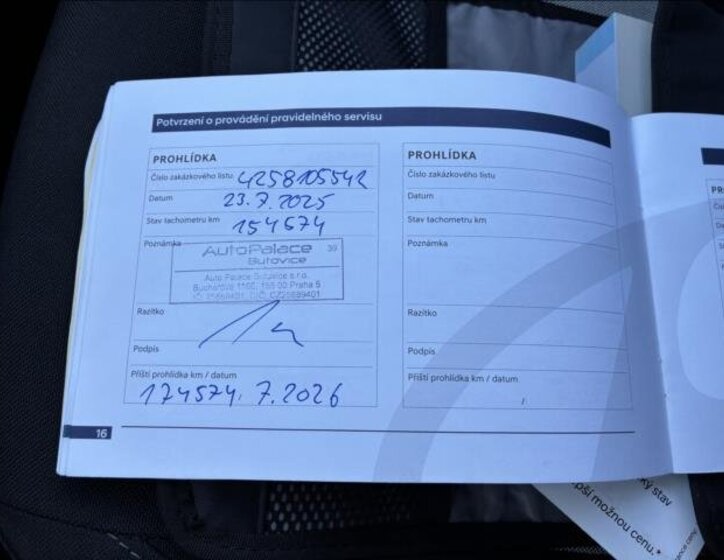 Potvrzení o provádění pravidelného servisu
PROHLÍDKA
Číslo zakázkového listu 4258105542
Datum 23.7.2025
Stav tachometru km 154574
Poznámka
AutoPalace 39
Butovice
Auto Palace Butovice s.r.o.
Bucharova 1186, 155 00 Praha 5
Razítko
Podpis
Příští prohlídka km / datum
174574. 7.2026
16
PROHLÍDKA
Číslo zakázkového listu
Datum
Stav tachometru km
Poznámka
Razítko
Podpis
Příští prohlídka km / datum
/
ký stav
pší možnou cenu.*